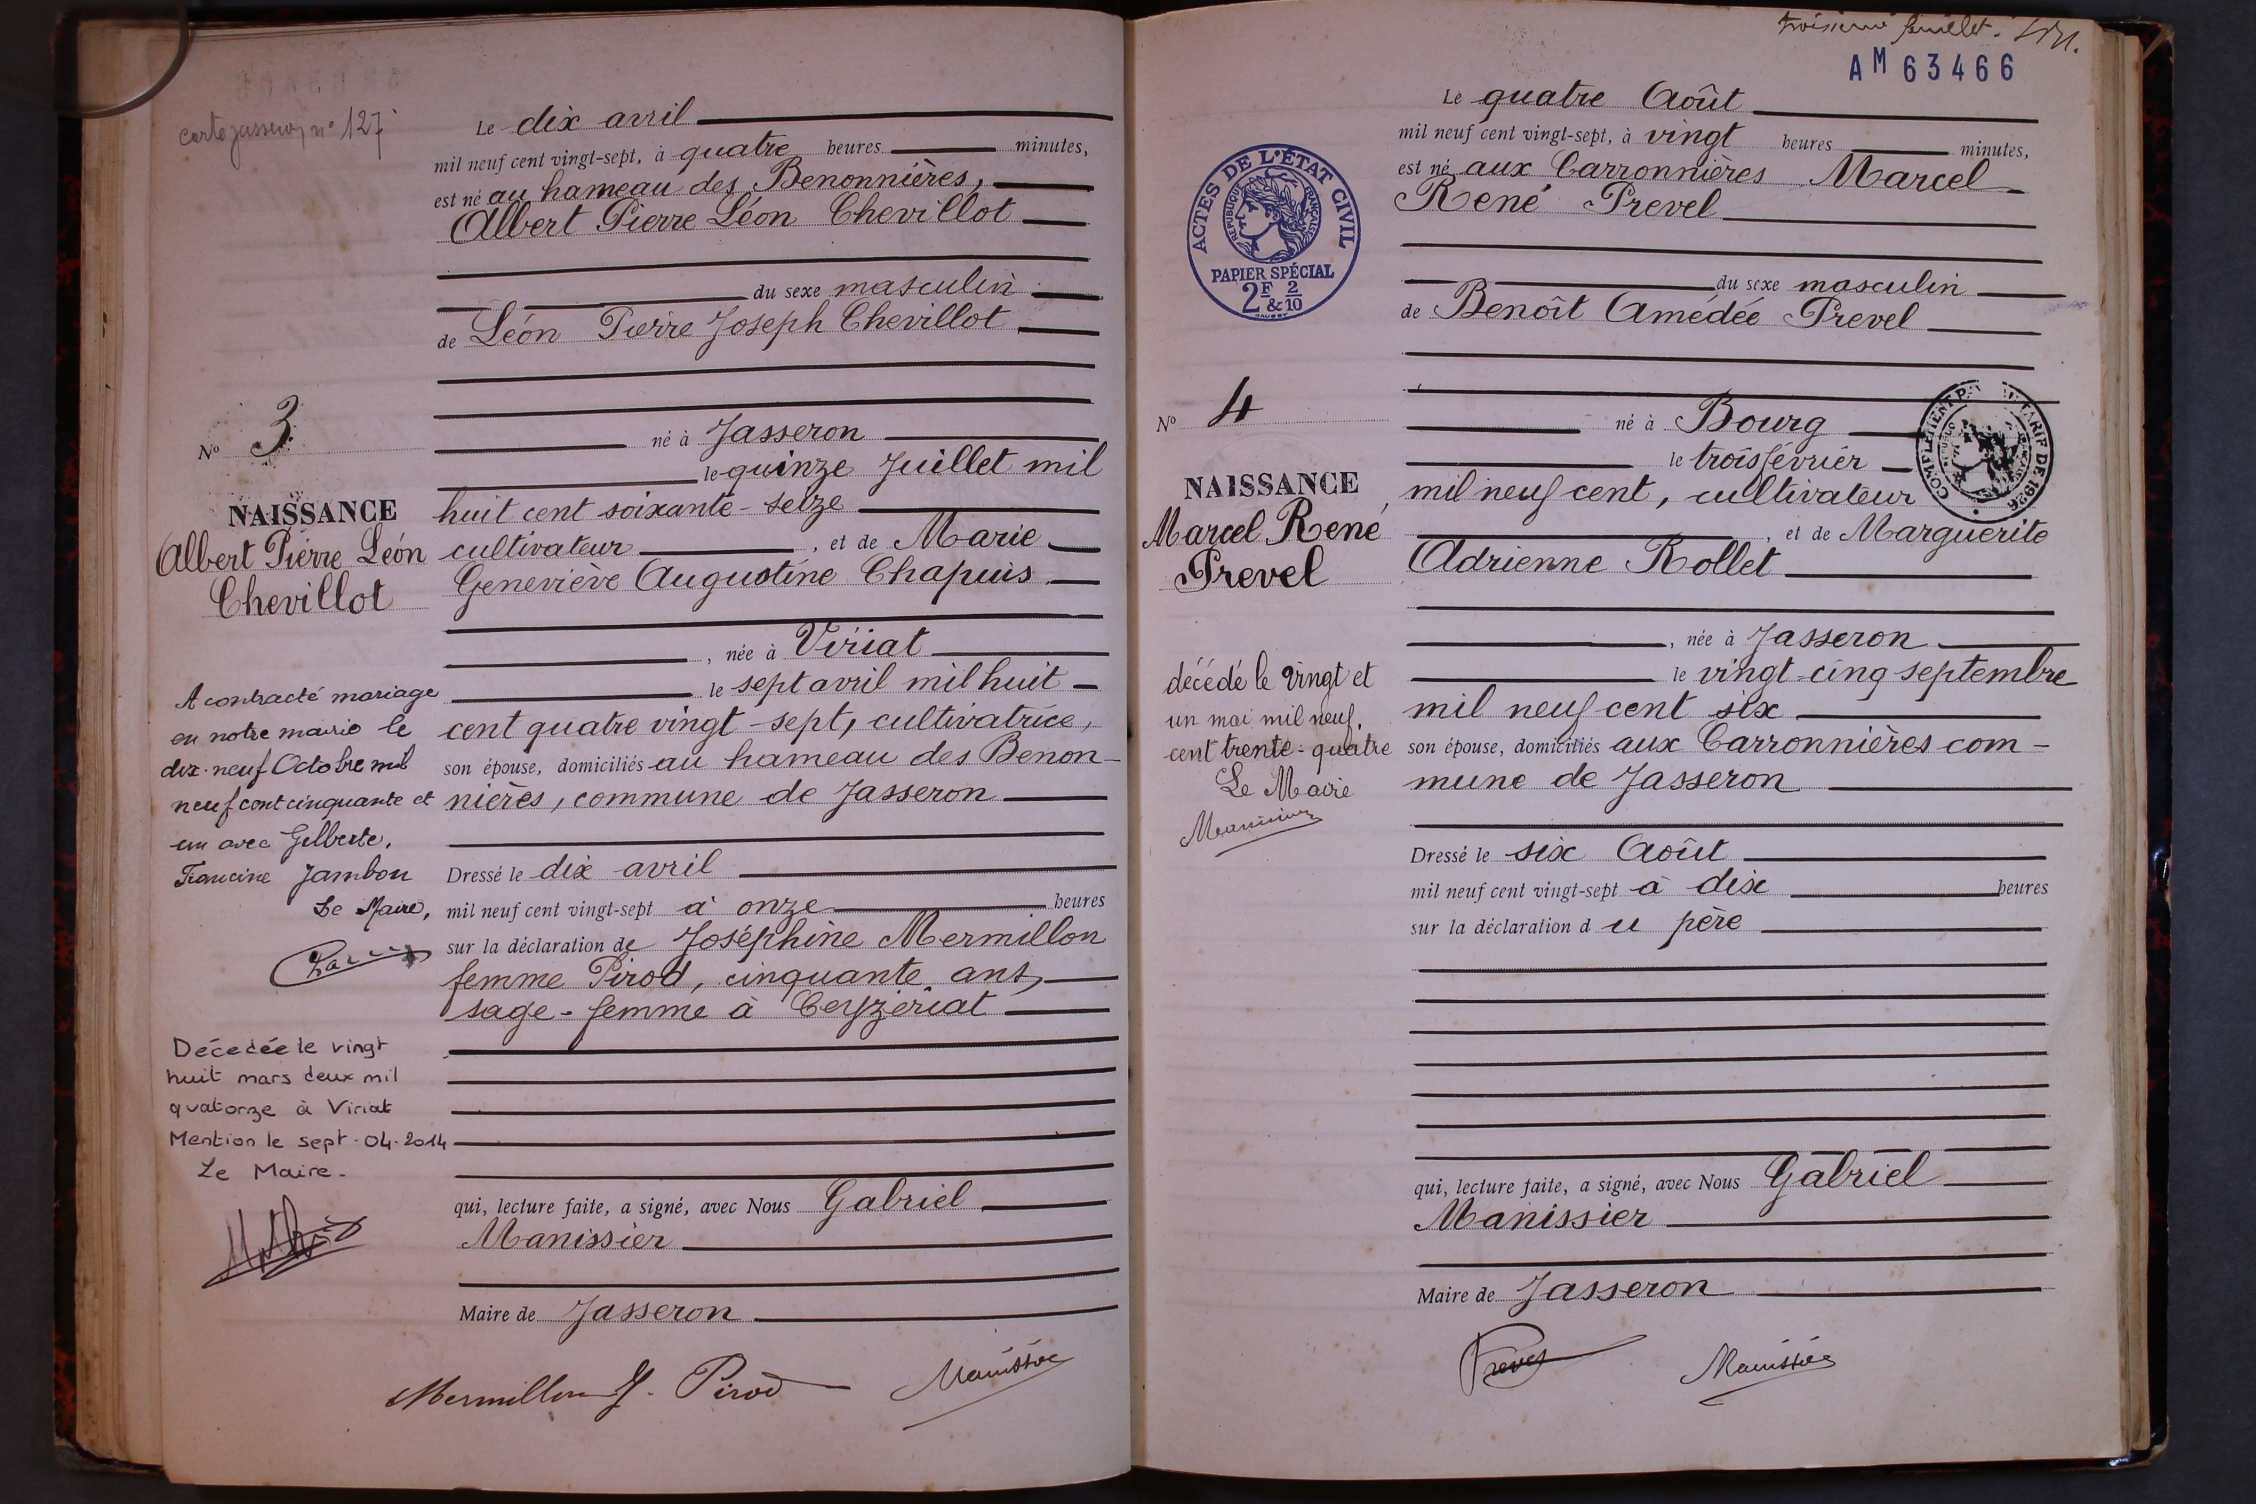 n° 127
Le dix avril
mil neuf cent vingt-sept, à quatre heures minutes,
est né au hameau des Benonnières,
Albert Pierre Léon Chevillot
du sexe masculin
de Léon Pierre Joseph Chevillot
né à Jasseron
le quinze Juillet mil
huit cent soixante-seize
cultivateur, et de Marie
Geneviève Augustine Chapuis
, née à Viriat
le sept avril mil huit
cent quatre vingt-sept, cultivatrice,
son épouse, domiciliés au hameau des Benon-
nières, commune de Jasseron
Dressé le dix avril
mil neuf cent vingt-sept à onze heures
sur la déclaration de Joséphine Mermillon
femme Pirod, cinquante ans,
sage-femme à Ceyzériat
qui, lecture faite, a signé, avec Nous Gabriel
Manissier
Maire de Jasseron
Mermillon J. Pirod Manissier
No 3
NAISSANCE
Albert Pierre Léon
Chevillot
A contracté mariage
en notre mairie le
dix-neuf Octobre mil
neuf cent cinquante et
un avec Gilberte,
Francine Jambon
Le Maire,
Décédée le vingt
huit mars deux mil
quatorze à Viriat
Mention le sept-04-2014
Le Maire-
troisième feuillet.
AM 63466
ACTES DE L'ÉTAT CIVIL
RÉPUBLIQUE FRANÇAISE
PAPIER SPÉCIAL
2F & 2/10
Le quatre Août
mil neuf cent vingt-sept, à vingt heures minutes,
est né aux Carronnières Marcel
René Prevel
du sexe masculin
de Benoît Amédée Prevel
né à Bourg
le trois février
mil neuf cent, cultivateur
, et de Marguerite
Adrienne Rollet
, née à Jasseron
le vingt-cinq septembre
mil neuf cent six
son épouse, domiciliés aux Carronnières com-
mune de Jasseron
Dressé le six Août
mil neuf cent vingt-sept à dix heures
sur la déclaration du père
qui, lecture faite, a signé, avec Nous Gabriel
Manissier
Maire de Jasseron
Prevel Manissier
TARIF DE 1926
No 4
NAISSANCE
Marcel René
Prevel
décédé le vingt et
un mai mil neuf
cent trente-quatre
Le Maire
Manissier